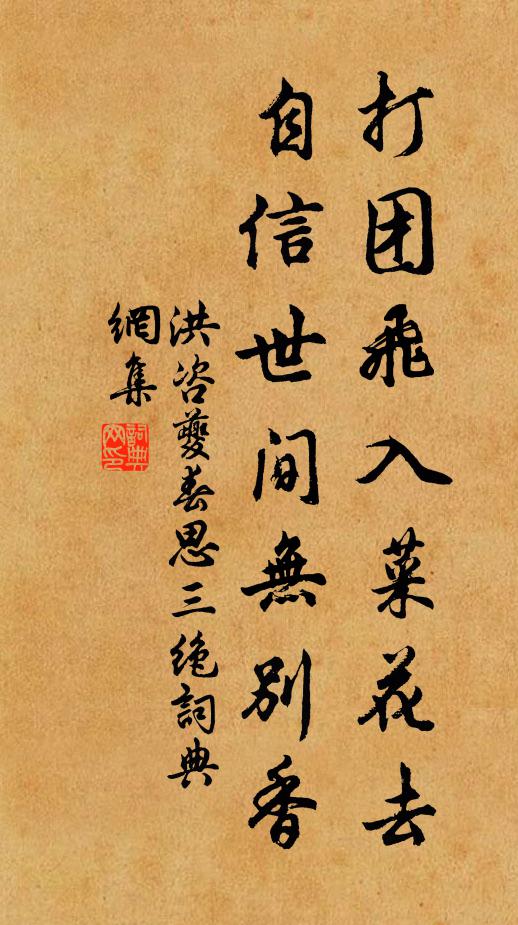 打团飛入菜花去
自信世间無别香
洪咨夔春思三绝詞典
網集
詞典网印